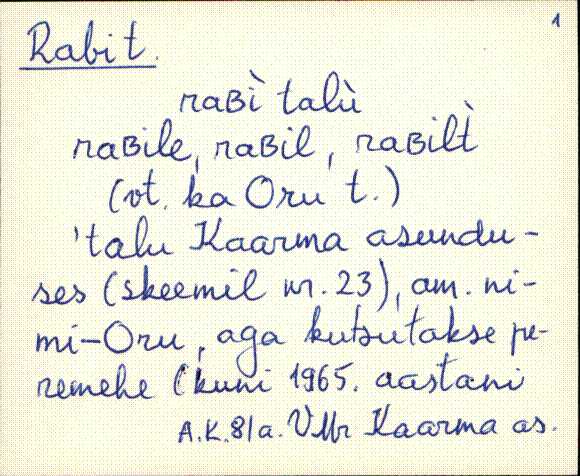 1
Rabi t.
raʙì talù
raʙile, raʙil, raʙilt̀
(vt. ka Oru t.)
'talu Kaarma asundu-
ses (skeemil nr. 23), am. ni-
mi-Oru, aga kutsutakse pe-
remehe (kuni 1965. aastani
A.K. 81a. VMr Kaarma as.